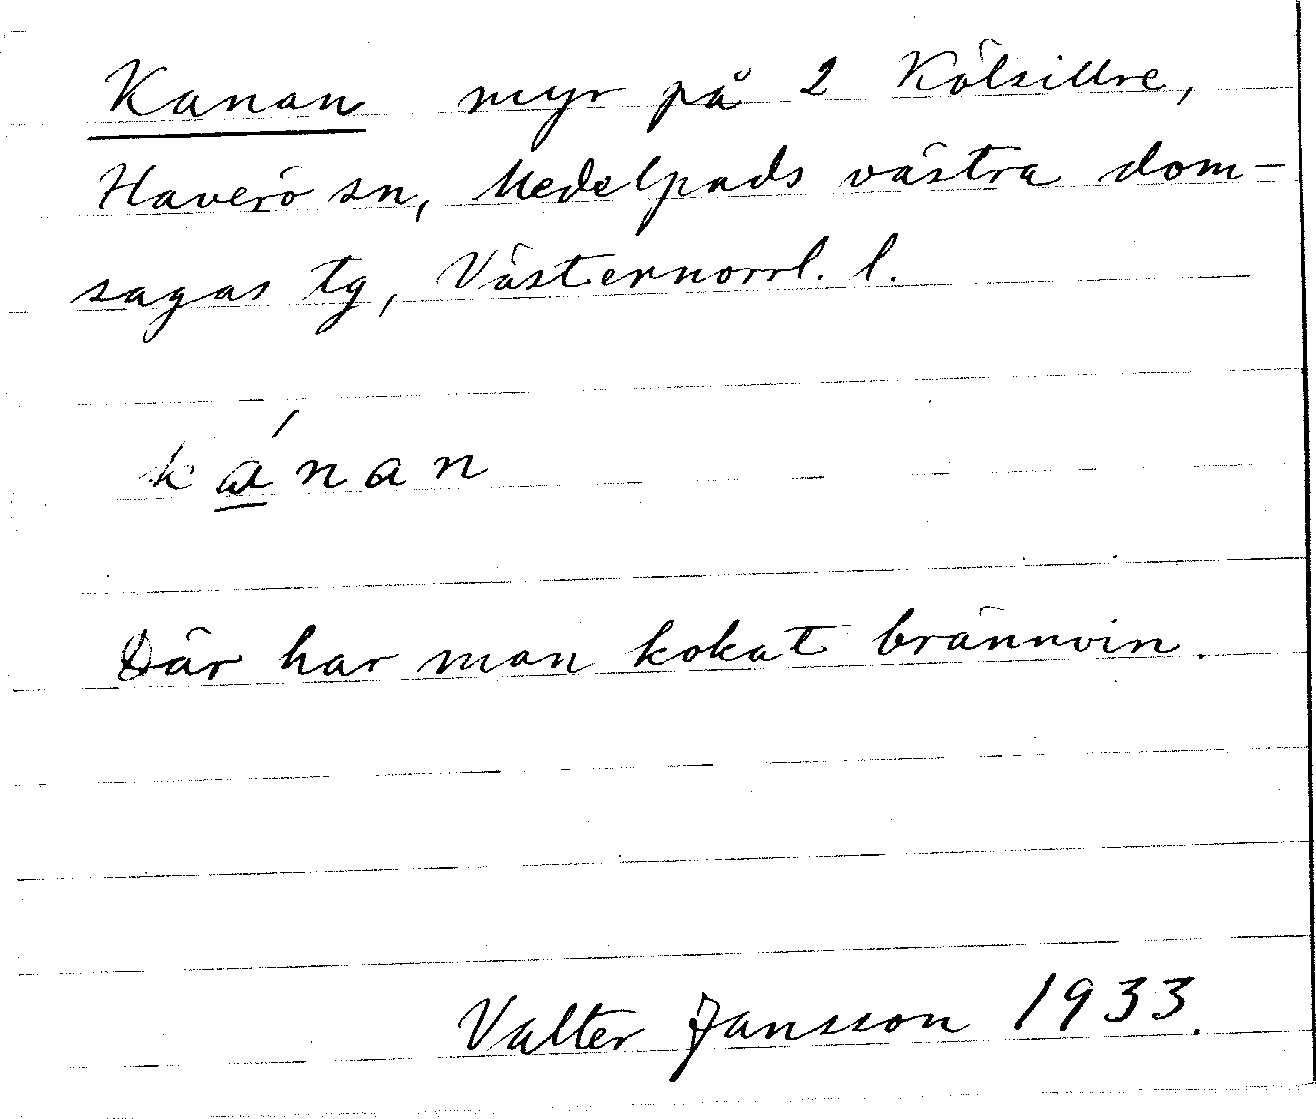 Kanan myr på 2 Kölsillre,
Haverö sn, Medelpads västra dom-
sagas tg, Västernorrl. l.
kánan
Där har man kokat brännvin.
Valter Jansson 1933.